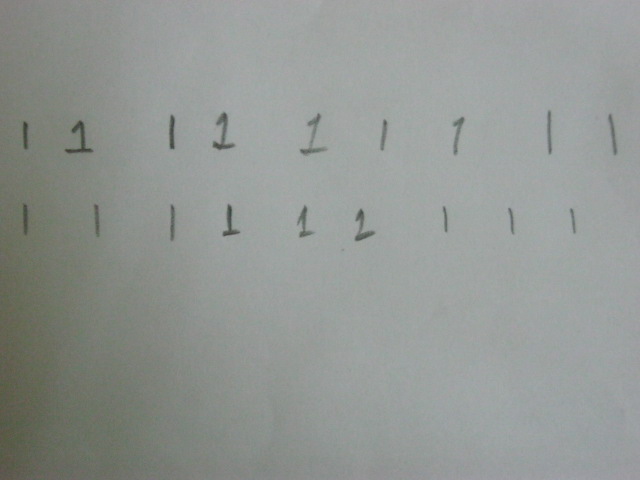 1 1 1 1 1 1 1 1 1
1 1 1 1 1 1 1 1 1